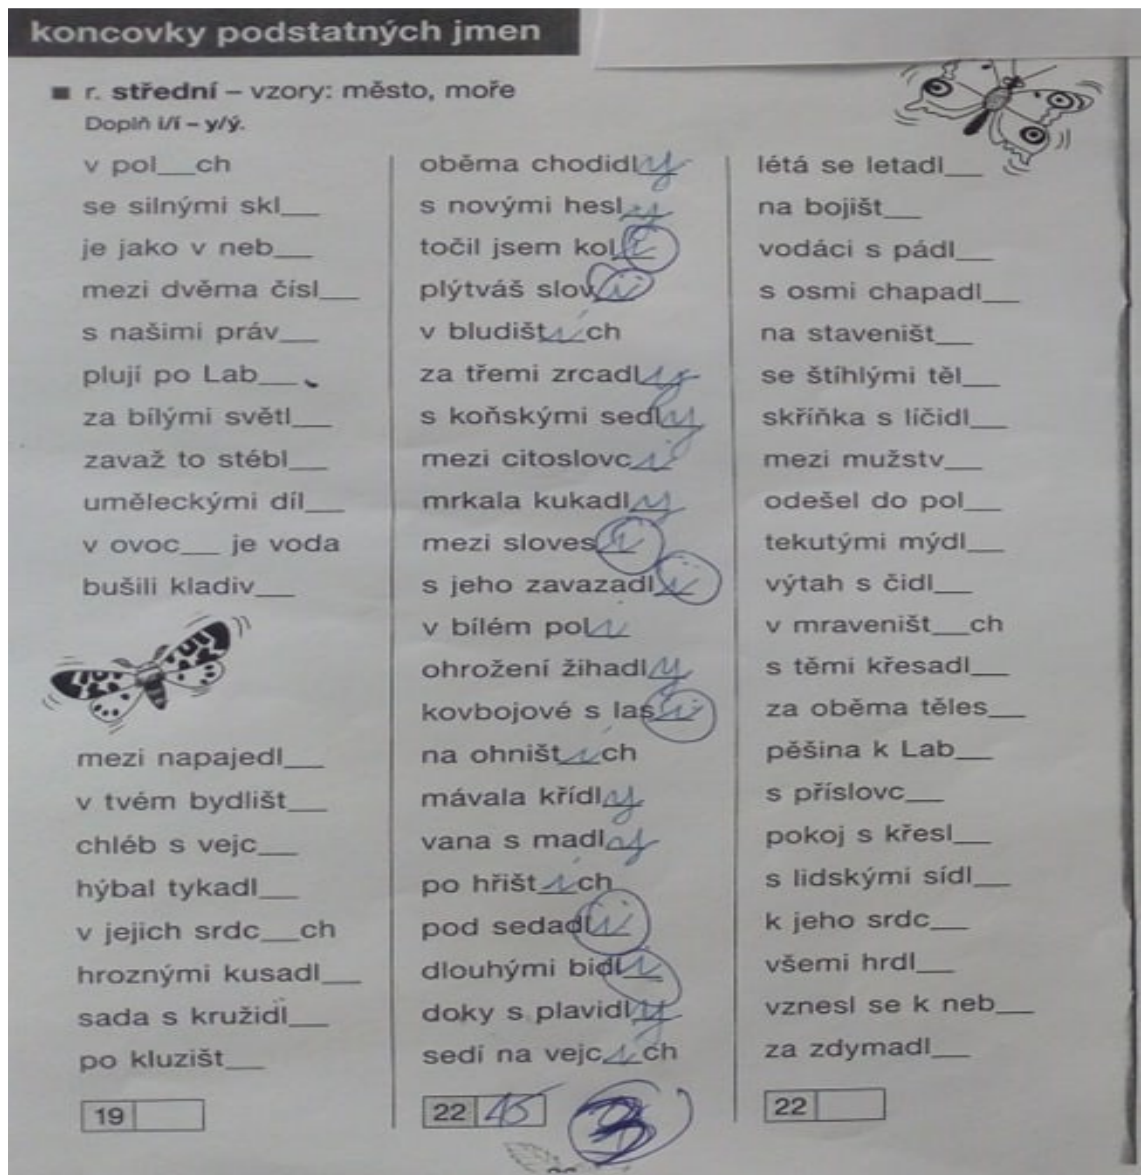 koncovky podstatných jmen
■ r. střední – vzory: město, moře
Doplň i/í – y/ý.
v pol___ch
se silnými skl___
je jako v neb___
mezi dvěma čísl___
s našimi práv___
plují po Lab___
za bílými světl___
zavaž to stébl___
uměleckými díl___
v ovoc___ je voda
bušili kladiv___
mezi napajedl___
v tvém bydlišt___
chléb s vejc___
hýbal tykadl___
v jejich srdc___ch
hroznými kusadl___
sada s kružidl___
po kluzišt___
19
oběma chodidly
s novými hesly
točil jsem koli
plýtváš slovi
v bludištích
za třemi zrcadly
s koňskými sedly
mezi citoslovci
mrkala kukadly
mezi slovesi
s jeho zavazadli
v bílém poli
ohrožení žihadly
kovbojové s lasi
na ohništích
mávala křídly
vana s madly
po hřištích
pod sedadli
dlouhými bidli
doky s plavidly
sedí na vejcích
22 15 3
létá se letadl___
na bojišt___
vodáci s pádl___
s osmi chapadl___
na staveništ___
se štíhlými těl___
skříňka s líčidl___
mezi mužstv___
odešel do pol___
tekutými mýdl___
výtah s čidl___
v mraveništ___ch
s těmi křesadl___
za oběma těles___
pěšina k Lab___
s příslovc___
pokoj s křesl___
s lidskými sídl___
k jeho srdc___
všemi hrdl___
vznesl se k neb___
za zdymadl___
22